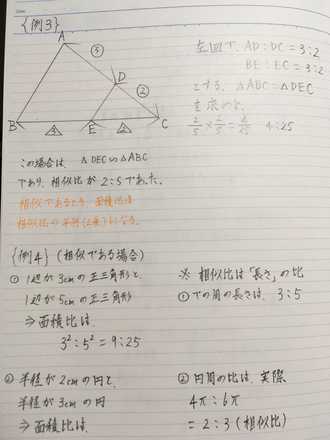 {例3}
A
③
D
②
B
E
C
③
②
左図で、AD:DC=3:2
BE:EC=3:2
とする。△ABC:△DEC
を求めよ。
2/5×2/5=4/25 4:25
この場合は △DEC∽△ABC
であり、相似比が2:5であった。
相似であるとき、面積比は
相似比の平方(2乗)になる。
{例4}(相似である場合)
① 1辺が3cmの正三角形と、
1辺が5cmの正三角形
⇒面積比は
3²:5²=9:25
※ 相似比は「長さ」の比
①での間の長さは、3:5
② 半径が2cmの円と、
半径が3cmの円
⇒面積比は、
② 円周の比は、実際
4π:6π
=2:3(相似比)